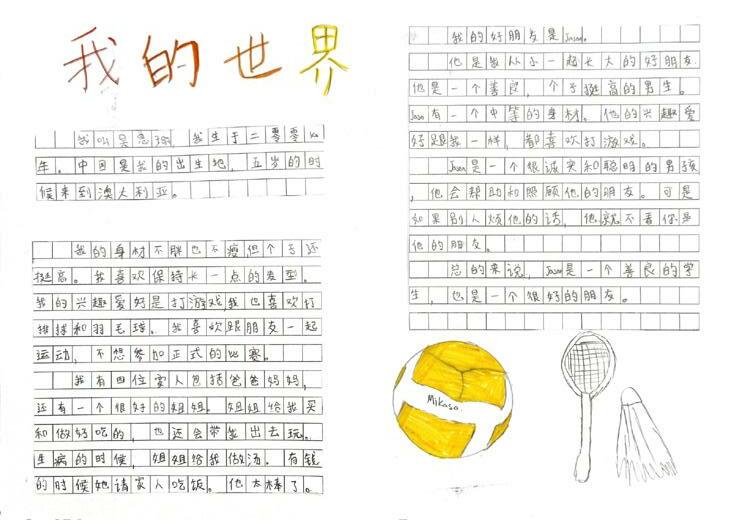 我的世界
我叫吴恩 我生于二零零
年。中国是我的出生地，五岁的时
候来到澳大利亚。
我的身材不胖也不瘦但个子还
挺高。我喜欢保持长一点的发型。
我的兴趣爱好是打游戏我也喜欢打
排球和羽毛球。我喜欢跟朋友一起
运动，不想参加正式的比赛。
我有四位家人包括爸爸妈妈，
还有一个很好的姐姐。姐姐给我买
和做好吃的，也还会带我出去玩。
生病的时候，姐姐给我做汤。有钱
的时候她请家人吃饭。他太棒了。
我的好朋友是Jason。
他是我从小一起长大的好朋友
他是一个善良，个子挺高的男生。
Jason有一个中等的身材。他的兴趣爱
好跟我一样，都喜欢打游戏。
Jason是一个很诚实和聪明的男孩
，他会帮助和照顾他的朋友。可是
如果别人烦他的话，他就不看你是
他的朋友。
总的来说，Jason是一个善良的学
生，也是一个很好的朋友。
Mikasa